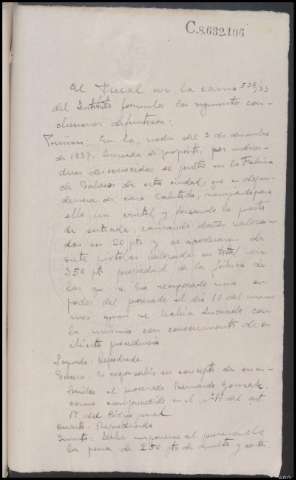 C.8.632.106
El Fiscal en la causa 538/33
del Instituto formula las siguientes con-
clusiones definitivas:
Primera: En la noche del 2 de diciembre
de 1937, de propósito, por indivi-
duos desconocidos se penetró en la Fábrica
de Tabacos de esta ciudad, que es depen-
dencia de casa habitada,
ella, un cristal y forzando la puerta
de entrada, causando daños valora-
dos en 20 pts y se apoderaron de
siete pistolas valoradas en total en
350 pts propiedad de la fábrica de
las que se ha recuperado una en
poder del procesado el día 11 del mismo
mes quien se había lucrado con
la misma con conocimiento de su
ilícita procedencia
Segunda: Reproducida
Tercera: Es responsable en concepto de encu-
bridor el procesado Fernando
como comprendido en el nº 1º del art
17 del Código penal
Cuarta: Reproducida
Quinta: Debe imponerse al procesado
la pena de 250 pts de multa y